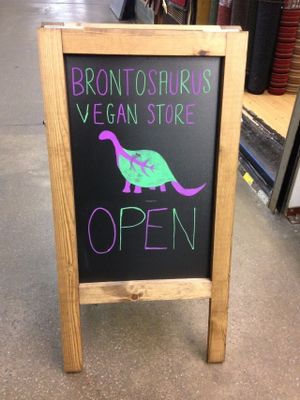 BRONTOSAURUS
VEGAN STORE
OPEN